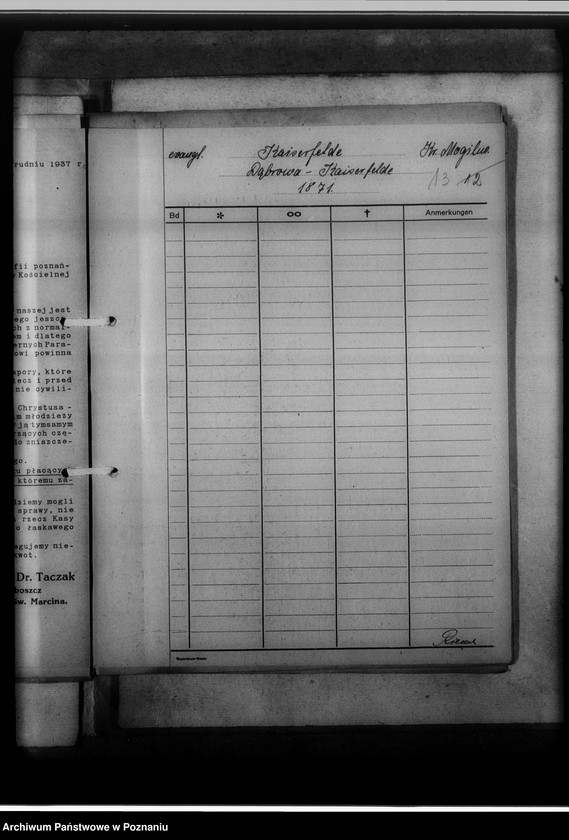 rudniu 1937 r.
fii poznań-
Kościelnej
naszej jest
ego jeszcze
ch z normal-
em i dlatego
ernych Para-
owi powinna
apory, które
zecz i przed
nie cywili-
Chrystusa -
m młodzieży
ją tymsamym
rzących czę-
do zniszcze-
go.
u płacący
któremu za-
dziemy mogli
sprawy, nie
rzecz Kasy
o łaskawego
agujemy nie-
kwot.
Dr. Taczak
boszcz
św. Marcina.
evangl. Kaiserfelde Kr. Mogilno
Dąbrowa - Kaiserfelde 13 12
1871.
Bd * oo † Anmerkungen
Archiwum Państwowe w Poznaniu